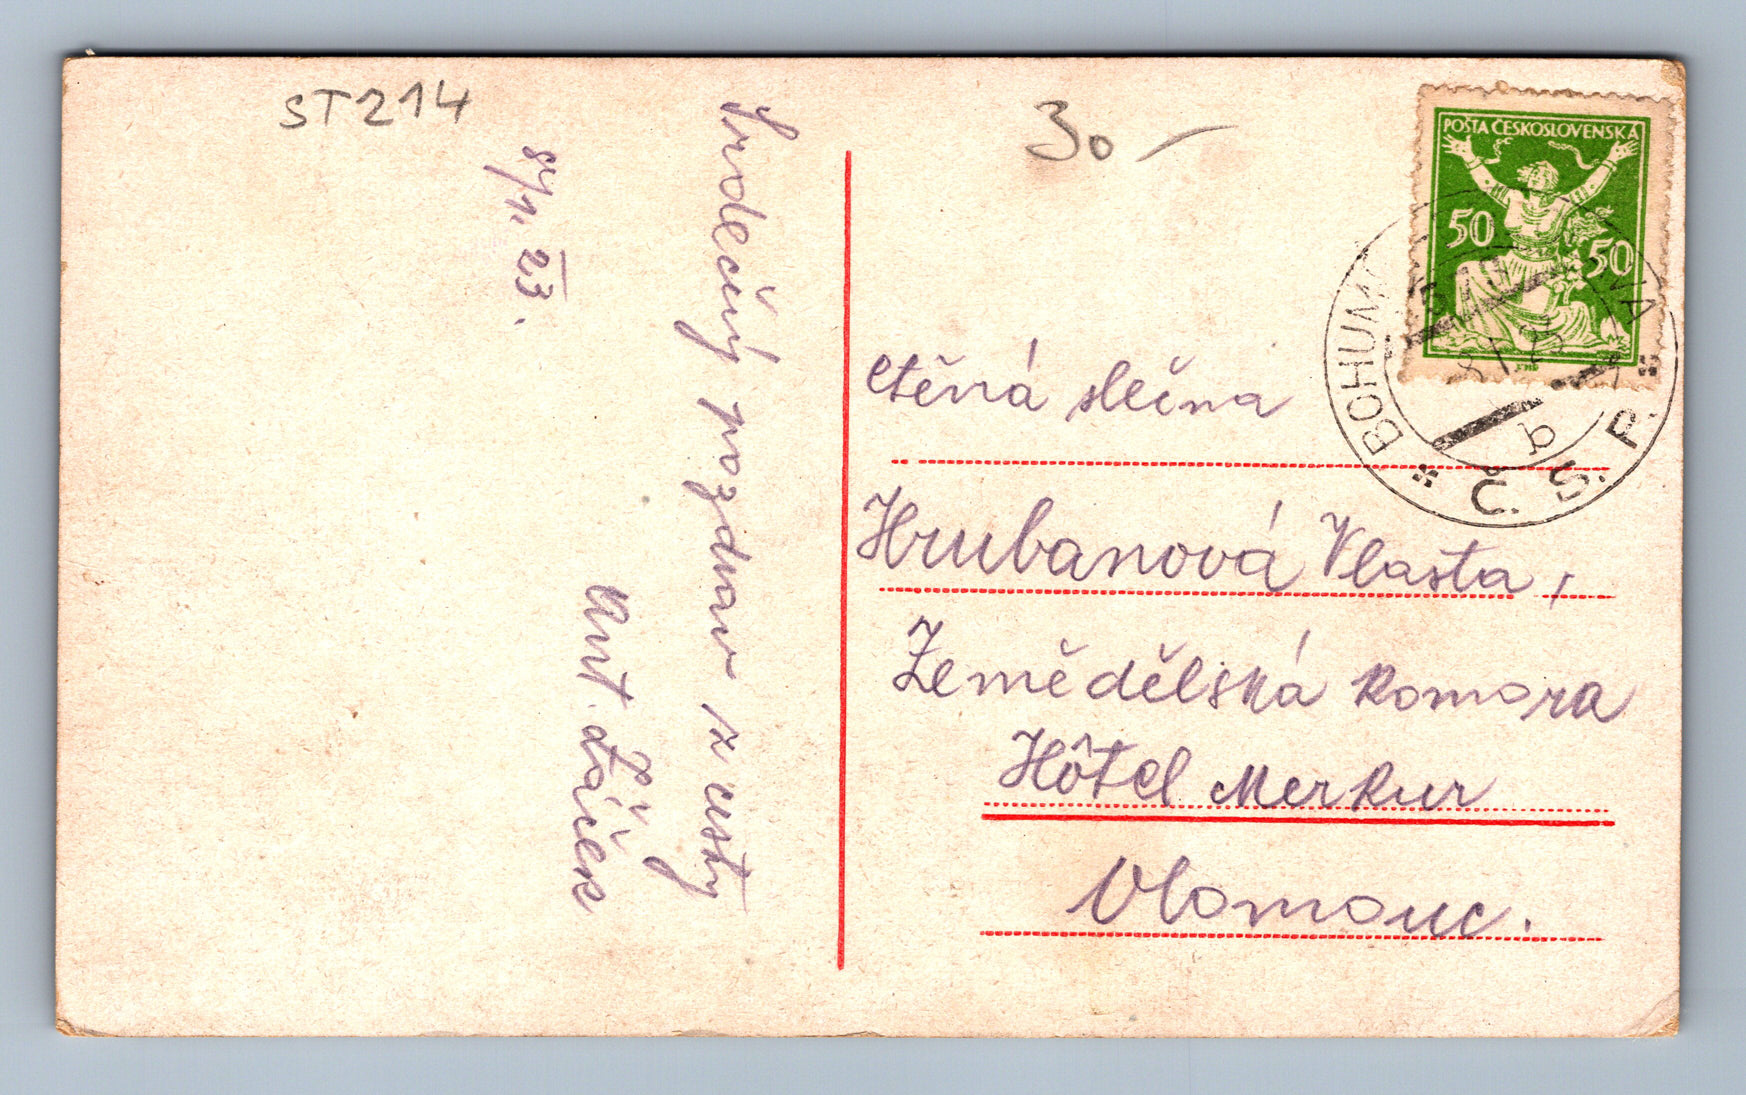 ST214
8/1. 23.
Srdečný pozdrav z cesty
Ant. Láček
30 –
POŠTA ČESKOSLOVENSKÁ
50
50
BOHUM
Č. S. P.
b
ctěná slečna
Hrubanová Vlasta,
Zemědělská Komora
Hôtel Merkur
Olomouc.